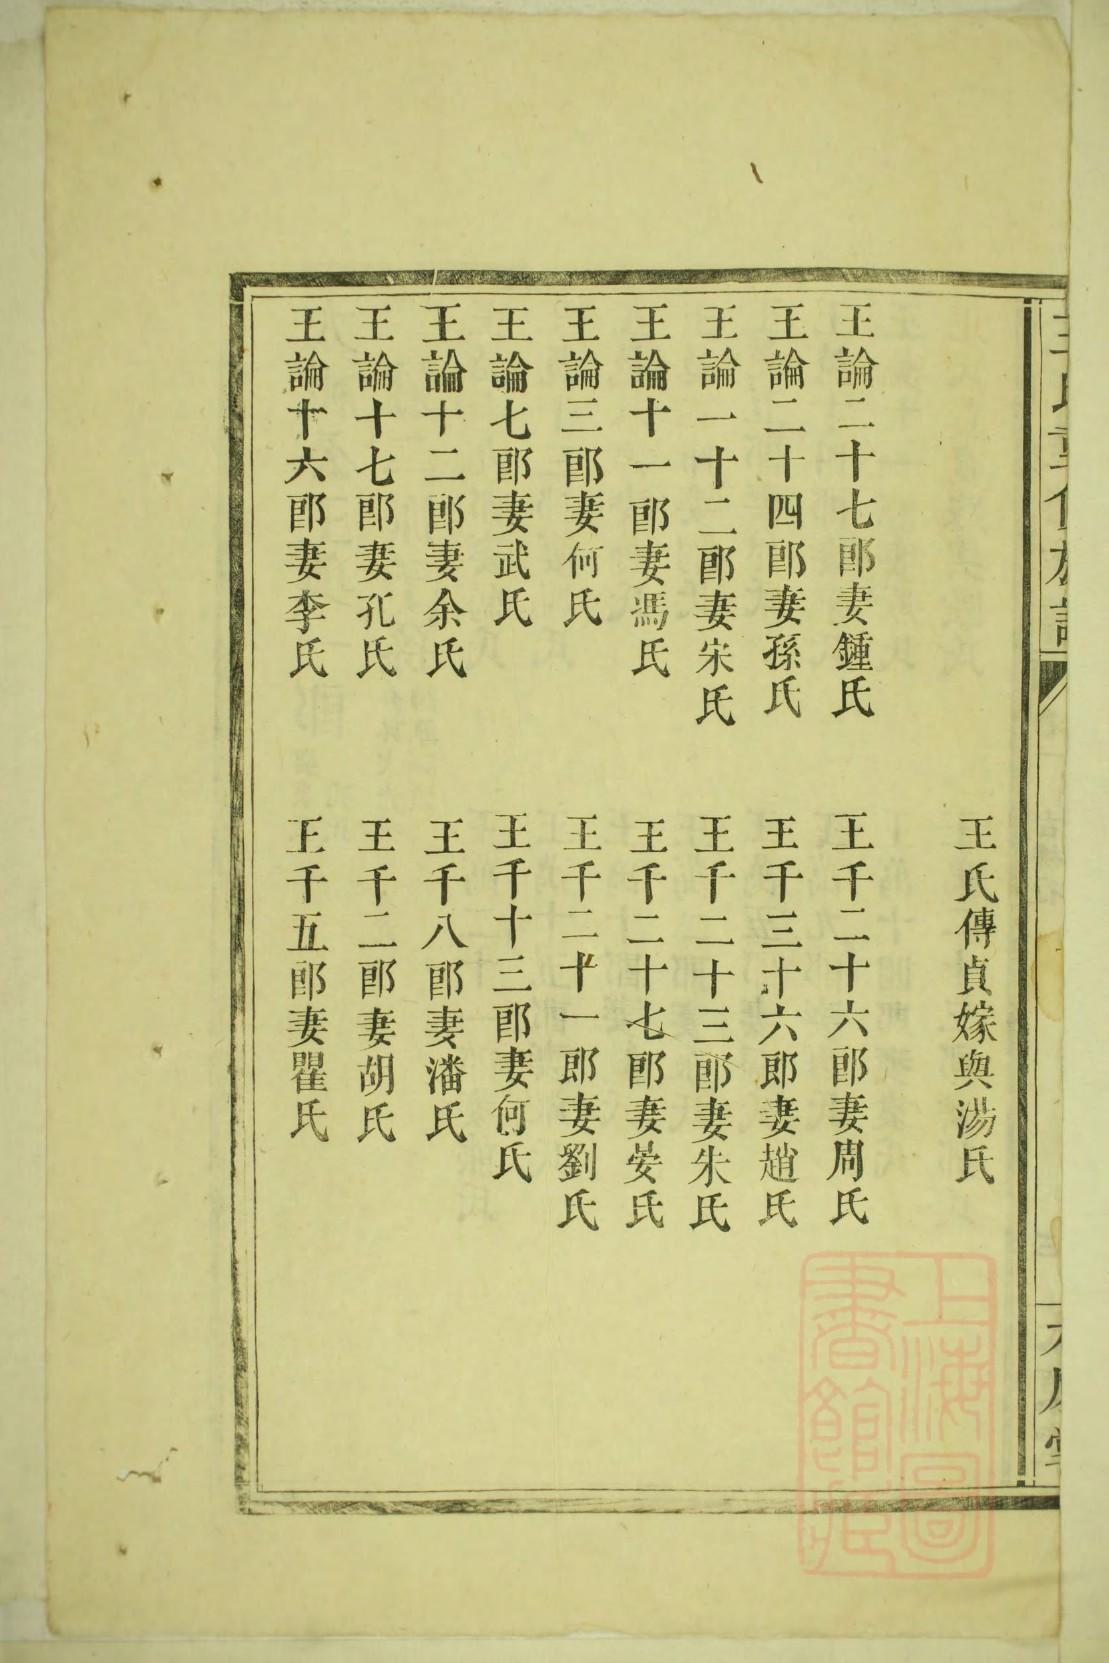 王氏傳貞嫁與湯氏
王論二十七郎妻鍾氏
王千二十六郎妻周氏
王論二十四郎妻孫氏
王千三十六郎妻趙氏
王論一十二郎妻宋氏
王千二十三郎妻朱氏
王論十一郎妻馮氏
王千二十七郎妻晏氏
王論三郎妻何氏
王千二十一郎妻劉氏
王論七郎妻武氏
王千十三郎妻何氏
王論十二郎妻余氏
王千八郎妻潘氏
王論十七郎妻孔氏
王千二郎妻胡氏
王論十六郎妻李氏
王千五郎妻瞿氏
上海圖
書館藏